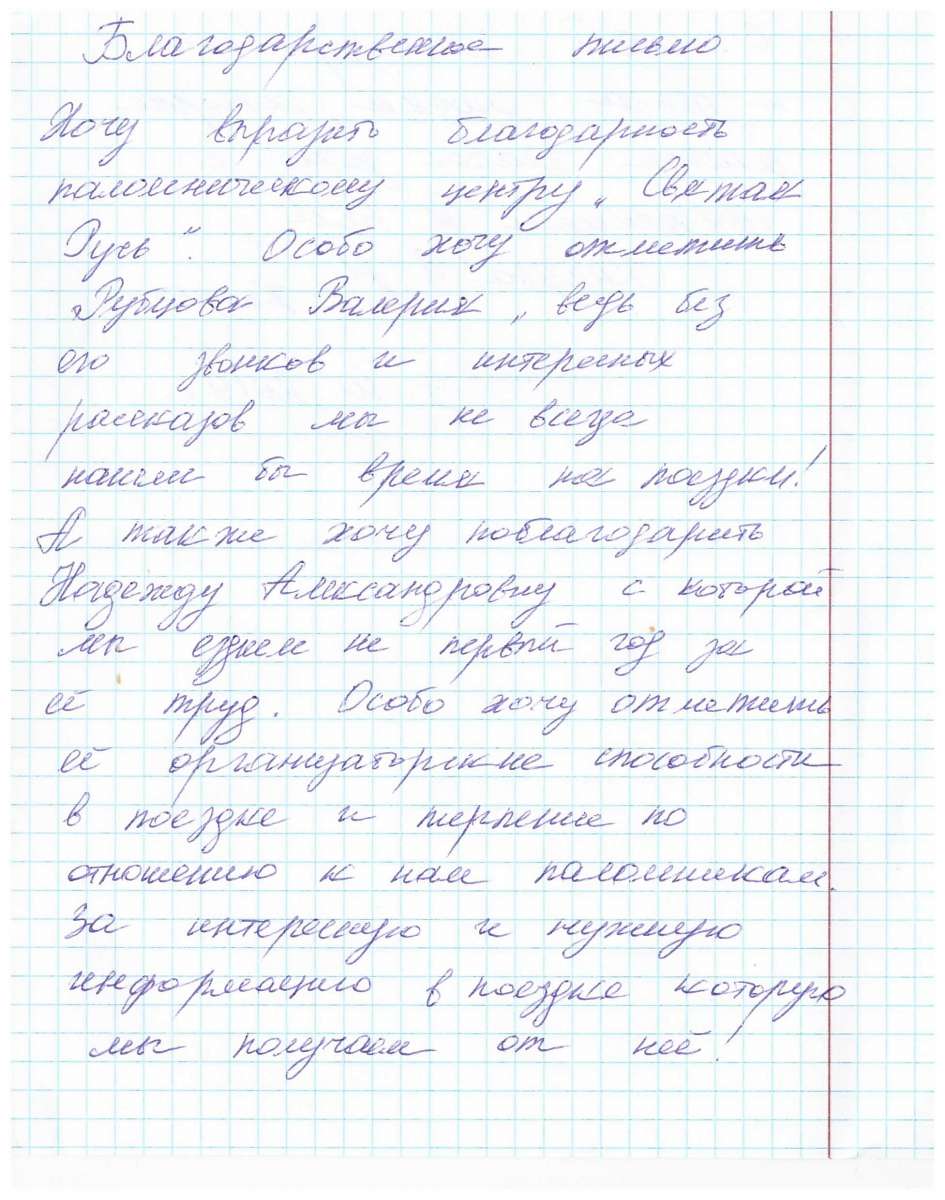 Благодарственное письмо
Хочу выразить благодарность
паломническому центру „Святая
Русь“. Особо хочу отметить
„Рубцова Валерия„ ведь без
его звонков и интересных
рассказов мы не всегда
нашли бы время на поездки!
А также хочу поблагодарить
Надежду Александровну с которой
мы ездием не первый год за
её труд. Особо хочу отметить
её организаторские способности
в поездке и терпение по
отношению к нам паломникам.
За интересную и нужную
информацию в поездке которую
мы получаем от неё!